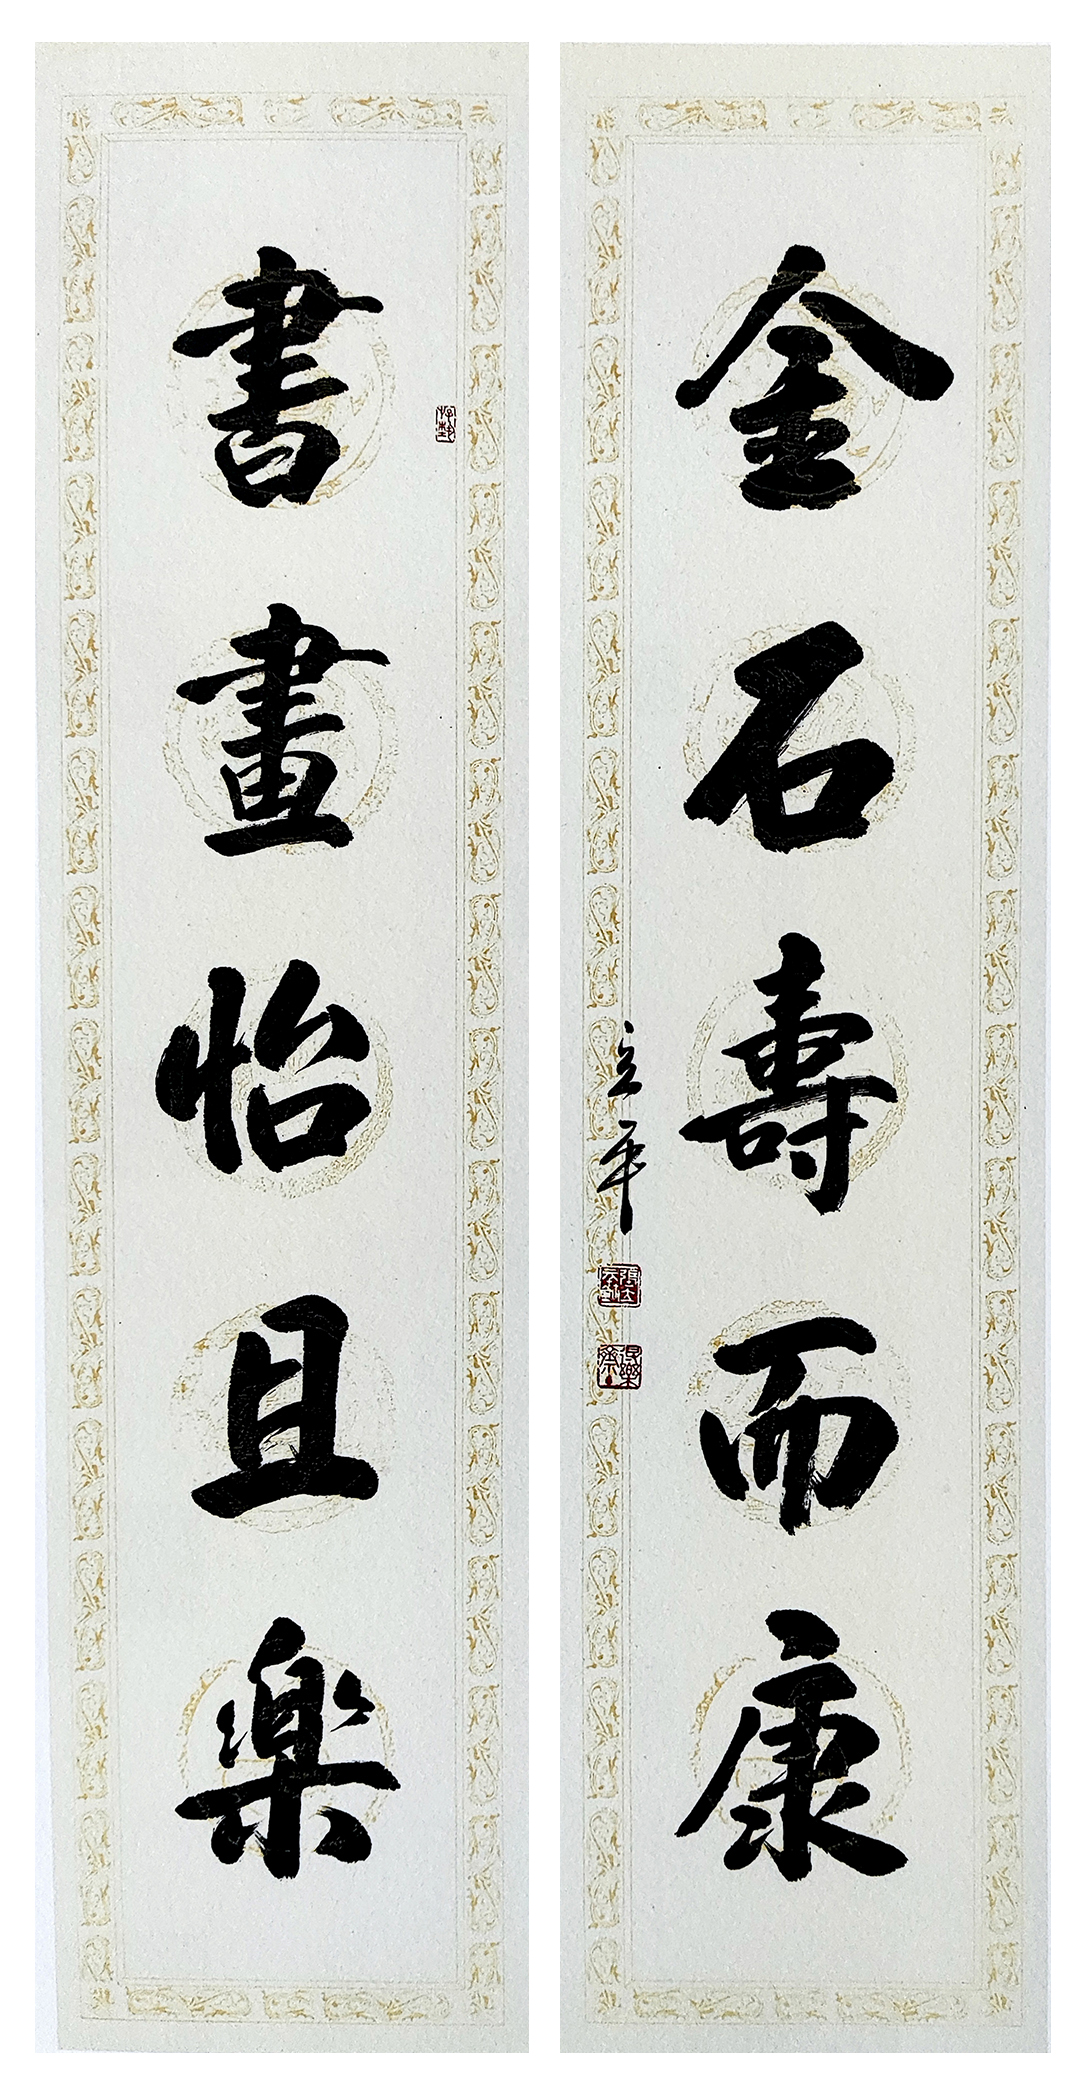 書畫怡且樂
金石壽而康
立平
得樂齋